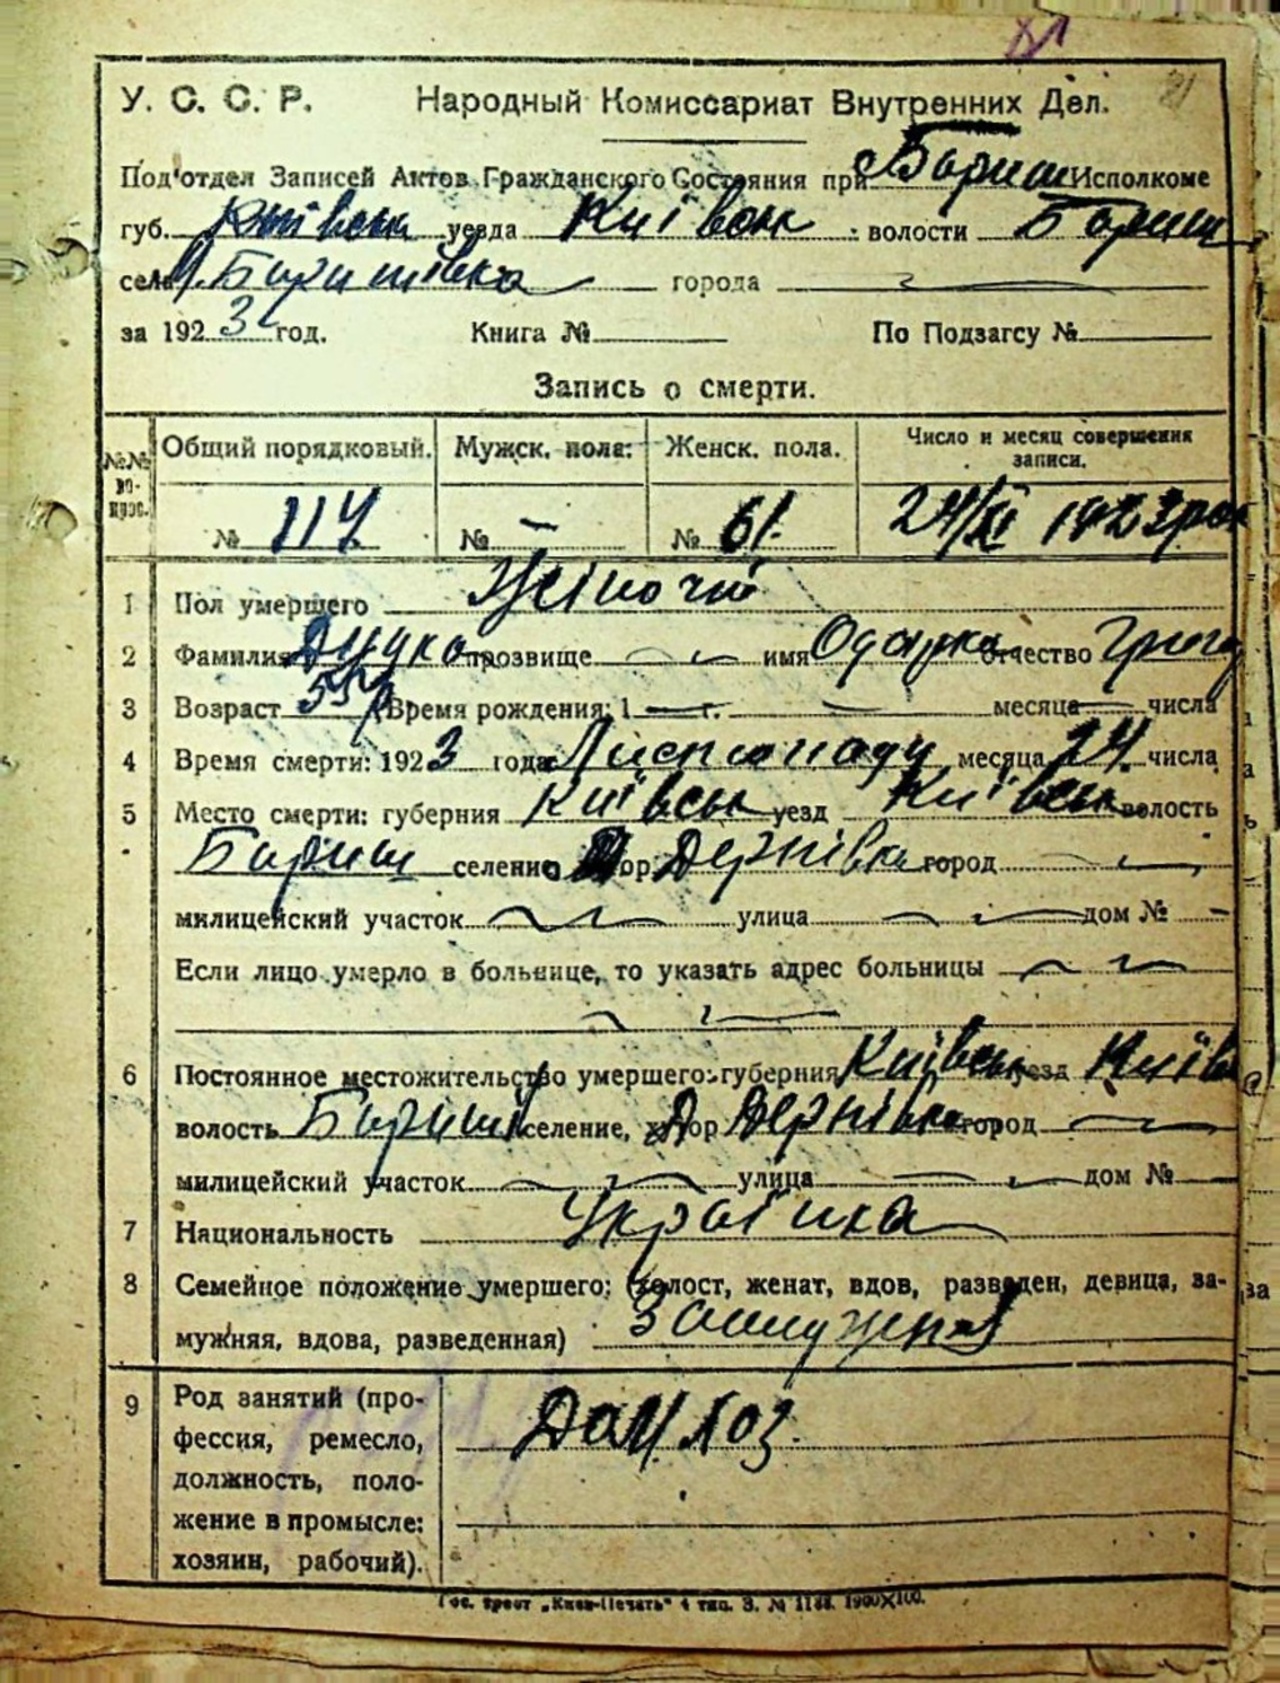 81
21
У. С. С. Р. Народный Комиссариат Внутренних Дел.
Под'отдел Записей Актов Гражданского Состояния при Бориш Исполкоме
губ. Київськ уезда Київськ волости Бориш
села Боришівка города
за 1923 год. Книга № По Подзагсу №
Запись о смерти.
№№ во-прос. Общий порядковый. Мужск. пола: Женск. пола. Число и месяц совершения записи.
№ 114 № — № 61. 24/XI 1923 рок
1 Пол умершего Жіночий
2 Фамилия прозвище имя Одарка отчество Григо
3 Возраст 55 р Время рождения: 1 — г. месяца — числа
4 Время смерти: 1923 года Листопаду месяца 24 числа
5 Место смерти: губерния Київськ уезд Київськ волость
Бориш селение, ор Дернівка город
милицейский участок улица дом № —
Если лицо умерло в больнице, то указать адрес больницы
6 Постоянное местожительство умершего: губерния Київськ уезд Київ
волость Бориш селение, хутор Дернівка город
милицейский участок улица дом №
7 Национальность Українка
8 Семейное положение умершего: (холост, женат, вдов, разведен, девица, за-
мужняя, вдова, разведенная) Замужня
9 Род занятий (про-
фессия, ремесло,
должность, поло-
жение в промысле:
хозяин, рабочий).
Дом. хоз.
Гос. трест „Киев-Печать" 4 тип. З. № 1188. 1900×100.